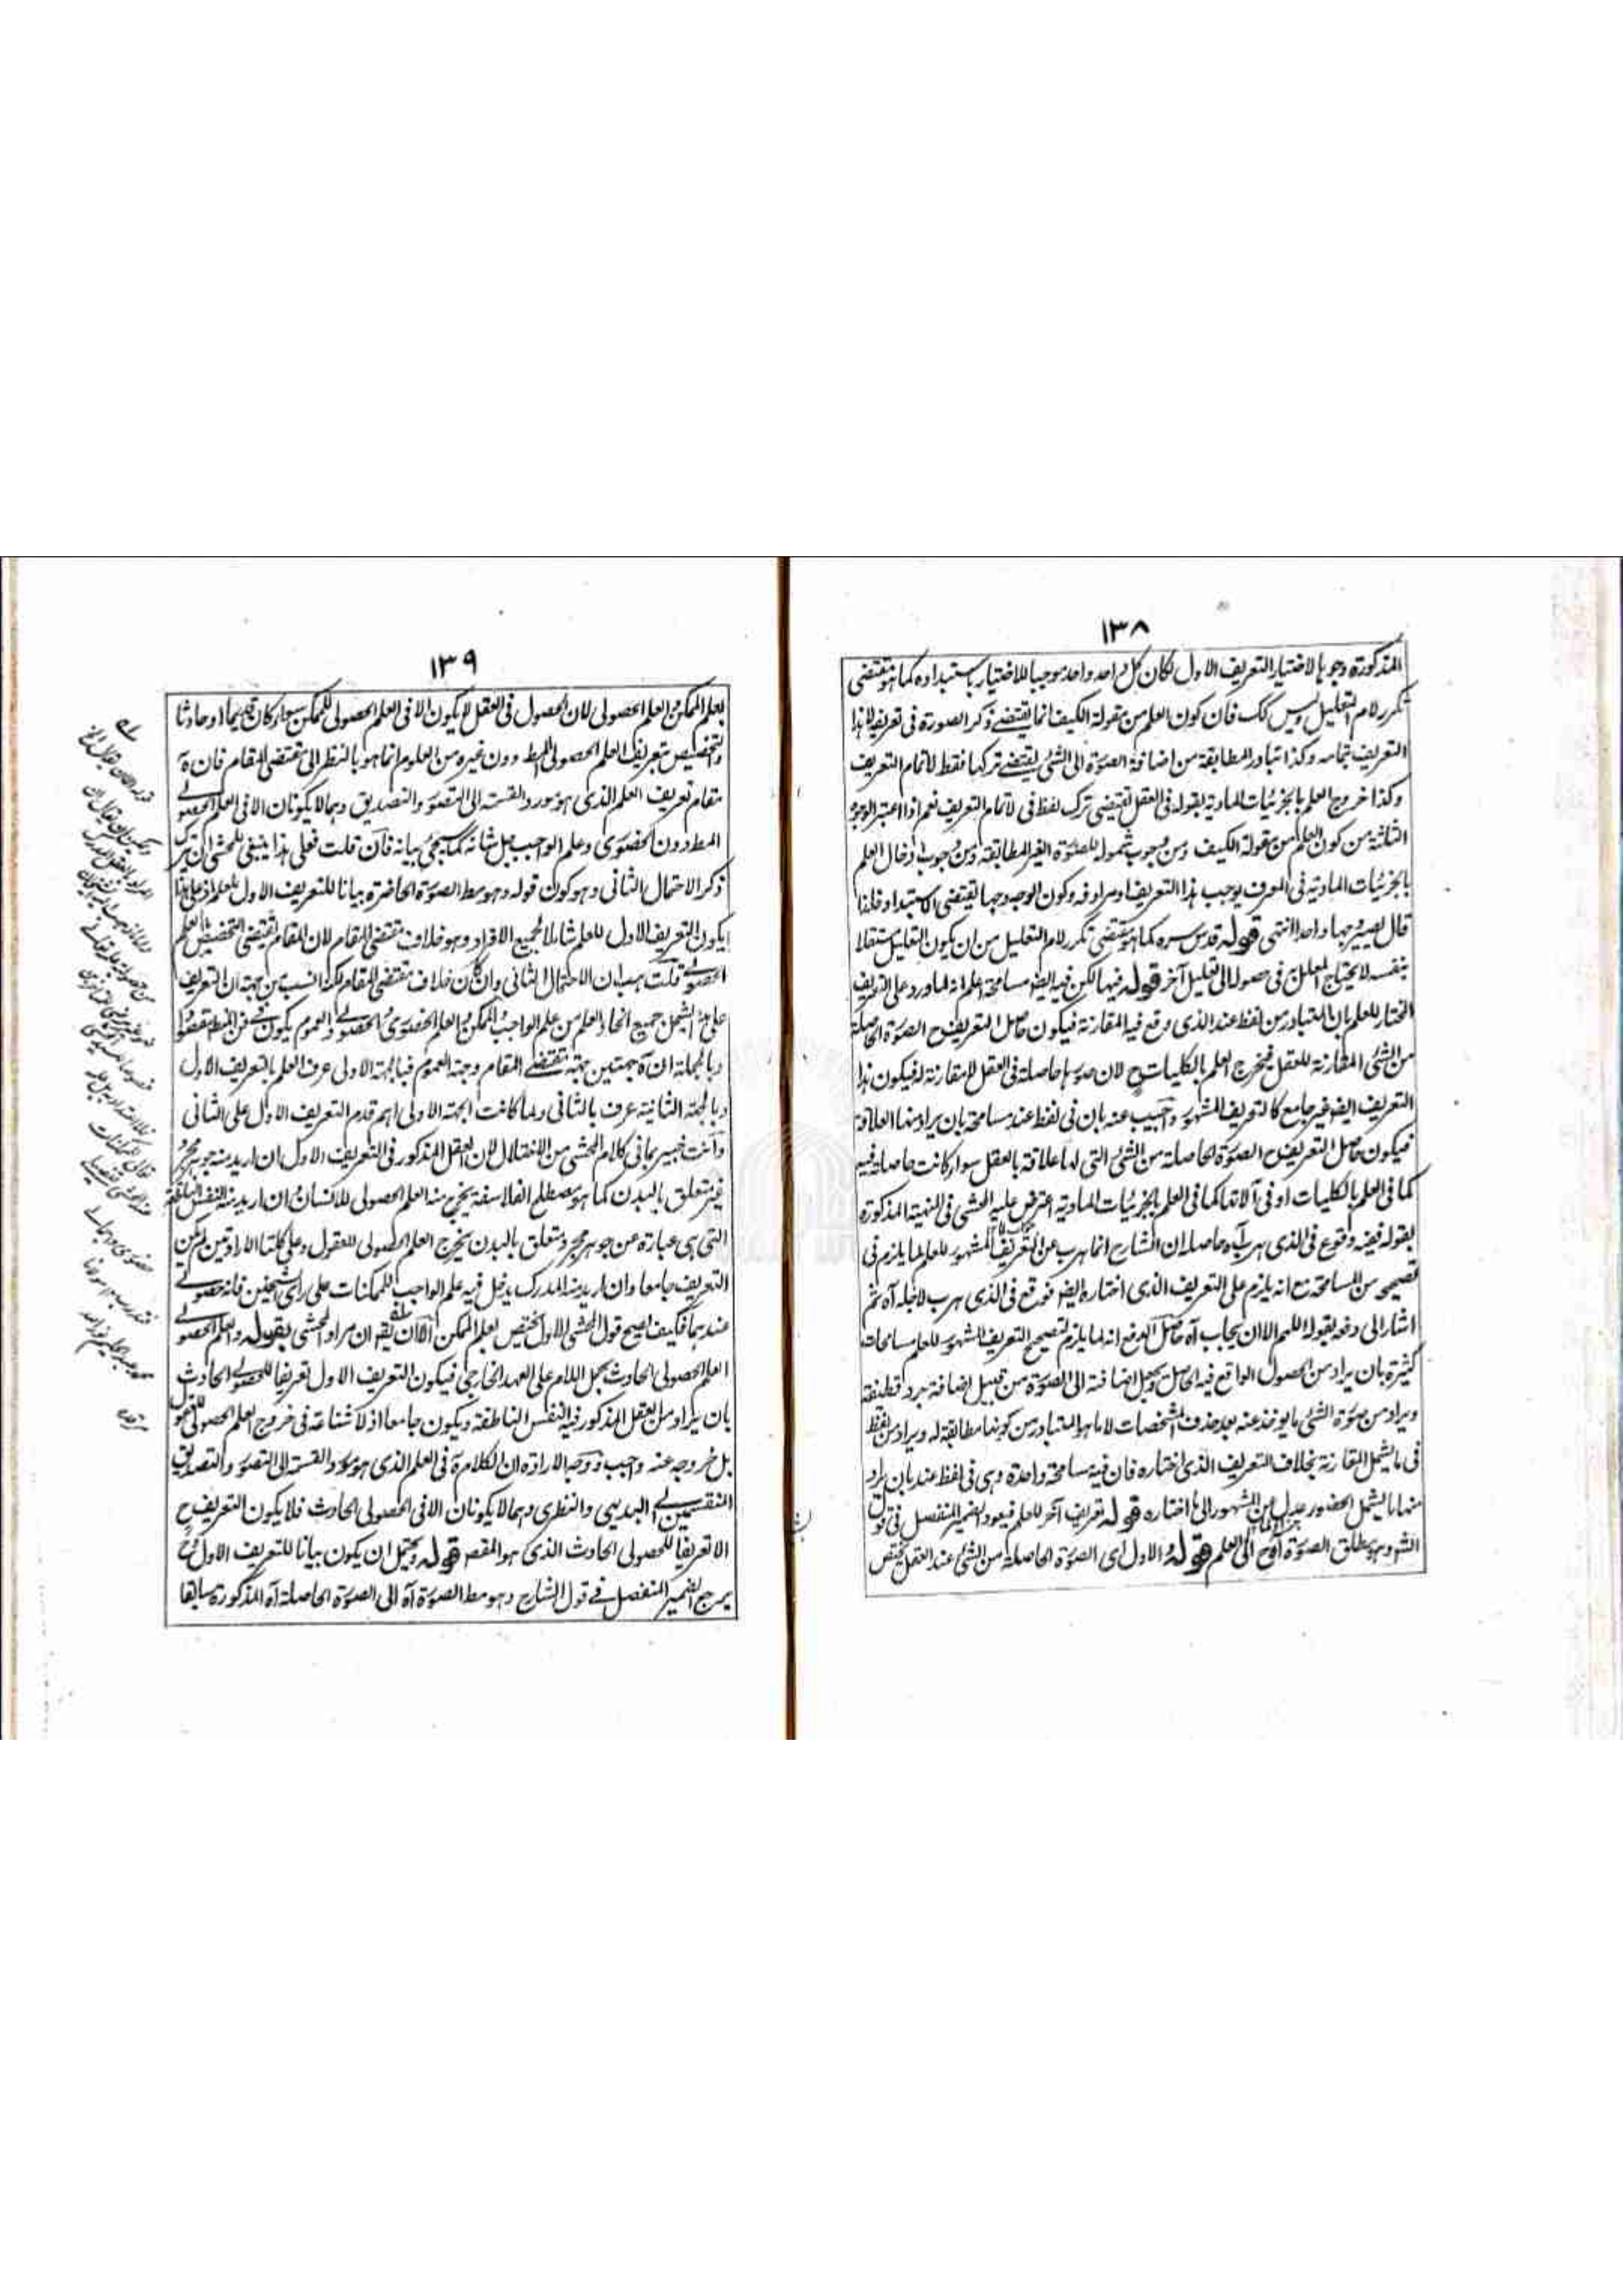 ١٣٨
المذكورة وجوبا لاختيار التعريف الاول لكان كل واحد واحد موجبا للاختيار باستبداده كما هو مقتضى
تكرر لام التعليل وليس كك فان كون العلم من مقولة الكيف انما يقتضے ذكر الصورة فى تعريفه لا هذا
التعريف بتمامه وكذا تبادر المطابقة من اضافة الصورة الى الشئ يقتضے تركها فقط لا تمام التعريف
وكذا خروج العلم بالجزئيات المادية بقوله فى العقل يقتضى ترك لفظ فى لا تمام التعريف نعم اذا اعتبر الوجوه
الثلثة من كون العلم من مقولة الكيف ومن وجوب شموله للصورة الغير المطابقة ومن وجوب ادخال العلم
بالجزئيات المادية فى المعرف يوجب هذا التعريف او مرادفه وكون الوجه وجها يقتضى الاستبداد فلذا
قال يصير وجها واحدا انتهى قوله قدس سره كما هو مقتضى تكرر لام التعليل من ان يكون التعليل مستقلا
بنفسه لا يحتاج المعلل فى حصوله الى تعليل آخر قوله فيها لكن فيه ايضا مسامحة اعلم انه لما ورد على التعريف
المختار للعلم بان المتبادر من لفظ عند الذى وقع فيه المقارنة فيكون حاصل التعريف ح الصورة الحاصلة
من الشئ المقارنة للعقل فيخرج العلم بالكليات ح لان صورها حاصلة فى العقل لا مقارنة له فيكون هذا
التعريف ايضا غير جامع كالتعريف المشهور واجيب عنه بان فى لفظ عند مسامحة بان يراد منها العلاقة
فيكون حاصل التعريف ح الصورة الحاصلة من الشئ التى لها علاقة بالعقل سواء كانت حاصلة فيه
كما فى العلم بالكليات او فى آلاتها كما فى العلم بالجزئيات المادية اعترض عليه المحشى فى المنهية المذكورة
بقوله ففيه وقوع فى الذى هرب آه حاصله ان الشارح انما هرب عن التعريف المشهور للعلم لما يلزم فى
تصحيحه من المسامحة مع انه يلزم على التعريف الذى اختاره ايضا فوقع فى الذى هرب لاجله آه ثم
اشار الى دفعه بقوله اللهم الا ان يجاب آه حاصل الدفع انه لما يلزم لتصحيح التعريف المشهور للعلم مسامحات
كثيرة بان يراد من الحصول الواقع فيه الحاصل ويجعل اضافته الى الصورة من قبيل اضافة جرد قطيفة
ويراد من صورة الشئ ما يوخذ عنه بعد حذف المشخصات لا ما هو المتبادر من كونها مطابقة له ويراد من لفظ
فى ما يشمل المقارنة بخلاف التعريف الذى اختاره فان فيه مسامحة واحدة وهى فى لفظ عند بان يراد
منها ما يشمل الحضور عدل عن المشهور الى ما اختاره قوله تعريف آخر للعلم فيعود الضمير المنفصل فى قول
الش وهو مطلق الصورة آه ح الى العلم قوله والاول اى الصورة الحاصلة من الشئ عند العقل يختص
١٣٩
بعلم الممكن والعلم الحصولى لان الحصول فى العقل لا يكون الا فى العلم الحصولى للممكن سواء كان قديما او حادثا
والتخصيص بتعريف العلم الحصولى المط دون غيره من العلوم انما هو بالنظر الى مقتضى المقام فان آه
مقام تعريف العلم الذى هو مورد القسمة الى التصور والتصديق وهما لا يكونان الا فى العلم الحصولے
المط دون الحضورى وعلم الواجب جل شانه كما سيجئ بيانه فان قلت فعلى هذا ينبغى للمحشى ان يترك
ذكر الاحتمال الثانى وهو كون قوله وهو مط الصورة الحاضرة بيانا للتعريف الاول للعلم اذ على هذا
يكون التعريف الاول للعلم شاملا لجميع الافراد وهو خلاف مقتضى المقام لان المقام يقتضى التخصيص بالعلم
الحصولے قلت هب ان الاحتمال الثانى وان كان خلاف مقتضى المقام لكنه انسب من جهة ان التعريف
على هذا يشمل جميع انحاء العلم من علم الواجب والممكن والعلم الحضورى والحصولے والعموم يكون فى فن المنطق مقصودا
وبالجملة ان آه جهتين جهة مقتضے المقام وجهة العموم فبالجهة الاولى عرف العلم بالتعريف الاول
وبالجهة الثانية عرف بالثانى ولما كانت الجهة الاولى اهم قدم التعريف الاول على الثانى
وانت خبير بما فى كلام المحشى من الاختلال لان العقل المذكور فى التعريف الاول ان اريد منه جوهر مجرد
غير متعلق بالبدن كما هو مصطلح الفلاسفة يخرج منه العلم الحصولى للانسان وان اريد منه النفس الناطقة
التى هى عبارة عن جوهر مجرد متعلق بالبدن يخرج العلم الحصولى للعقول وعلى كلتا الارادتين لم يكن
التعريف جامعا وان اريد منه المدرك يدخل فيه علم الواجب للممكنات على راى الشيخين فانه حصولے
عندهما فكيف يصح قول المحشى الاول يختص بعلم الممكن الا ان يقه ان مراد المحشى بقوله والعلم الحصولے
العلم الحصولى الحادث بحمل اللام على العهد الخارجى فيكون التعريف الاول تعريفا للحصولى الحادث
بان يراد من العقل المذكور فيه النفس الناطقة ويكون جامعا اذ لا شناعة فى خروج العلم الحصولى للعقول
بل خروجه عنه واجب ووجه الارادة ان الكلام آه فى العلم الذى هو مورد القسمة الى التصور والتصديق
المنقسمين الے البديهى والنظرى وهما لا يكونان الا فى الحصولى الحادث فلا يكون التعريف ح
الا تعريفا للحصولى الحادث الذى هو المقصد قوله ويحتمل ان يكون بيانا للتعريف الاول وح
يرجع الضمير المنفصل فے قول الشارح وهو مط الصورة آه الى الصورة الحاصلة آه المذكورة سابقا